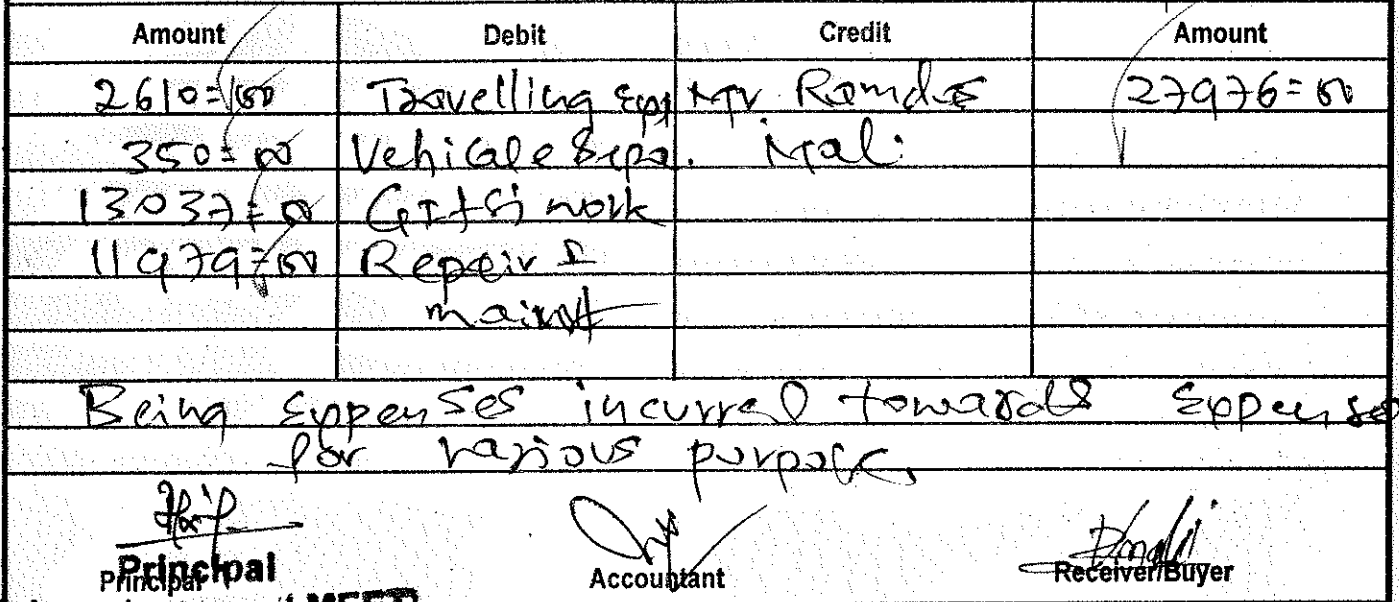 Amount Debit Credit Amount
2610=00 Travelling Exp Mr. Ramdas 27976=00
350=00 Vehicale Mali
13037=00 work
11979=00 Repair &
maint
Being Expenses incurred towards Expense
for various purpose,
Principal
Principal Accountant Receiver/Buyer